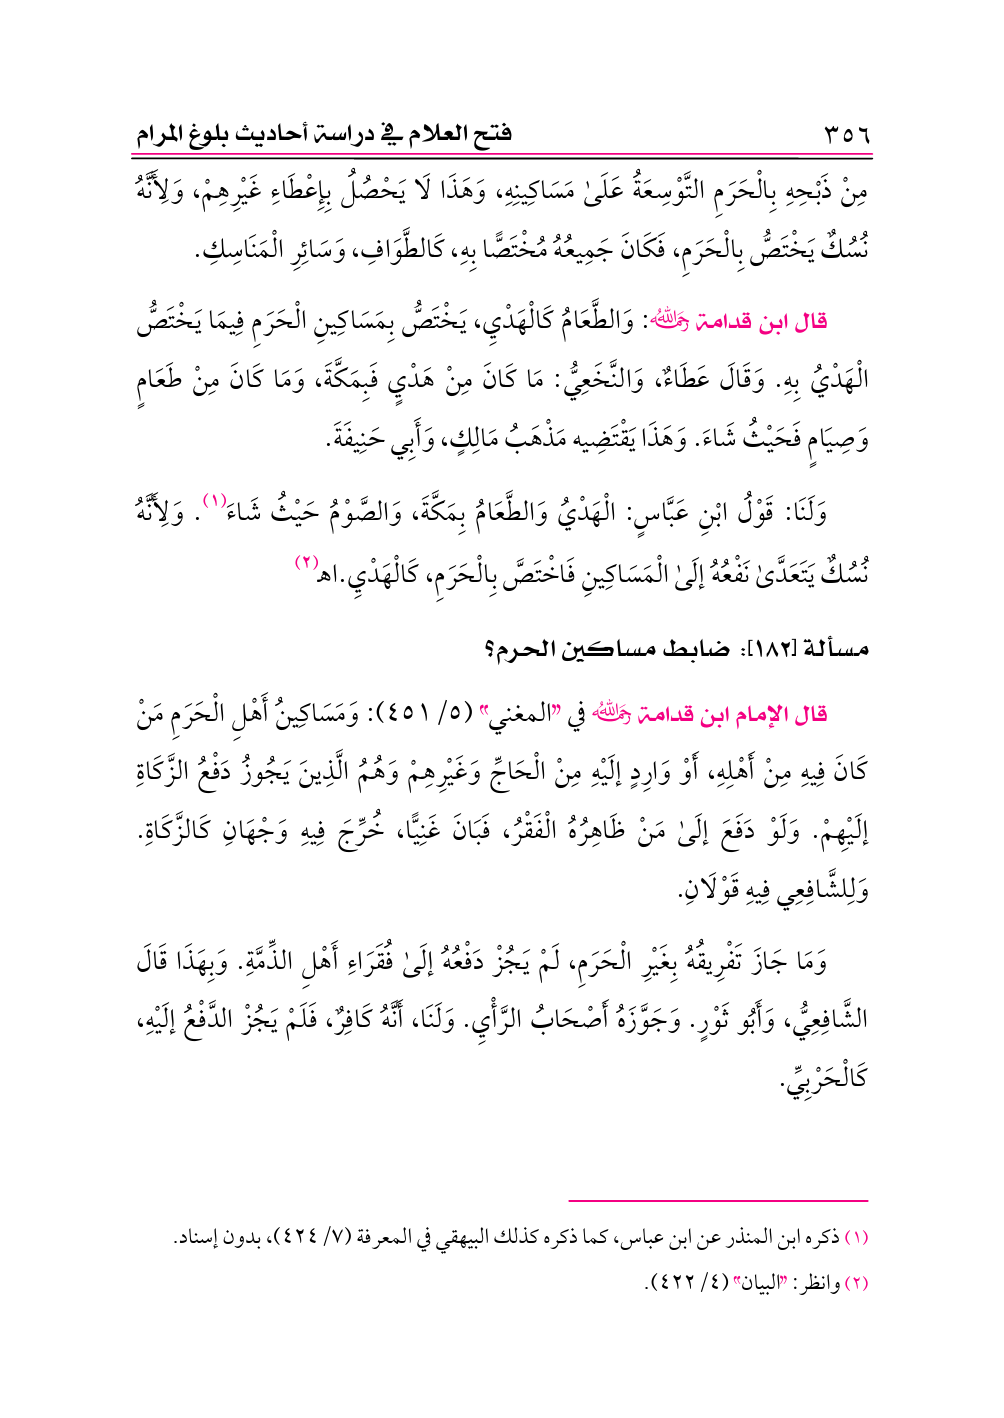 ٣٥٦ فتح العلام في دراسة أحاديث بلوغ المرام
مِنْ ذَبْحِهِ بِالْحَرَمِ التَّوْسِعَةُ عَلَىٰ مَسَاكِينِهِ، وَهَذَا لَا يَحْصُلُ بِإِعْطَاءِ غَيْرِهِمْ، وَلِأَنَّهُ
نُسُكٌ يَخْتَصُّ بِالْحَرَمِ، فَكَانَ جَمِيعُهُ مُخْتَصًّا بِهِ، كَالطَّوَافِ، وَسَائِرِ الْمَنَاسِكِ.
قال ابن قدامة رحمه الله: وَالطَّعَامُ كَالْهَدْيِ، يَخْتَصُّ بِمَسَاكِينِ الْحَرَمِ فِيمَا يَخْتَصُّ
الْهَدْيُ بِهِ. وَقَالَ عَطَاءٌ، وَالنَّخَعِيُّ: مَا كَانَ مِنْ هَدْيٍ فَبِمَكَّةَ، وَمَا كَانَ مِنْ طَعَامٍ
وَصِيَامٍ فَحَيْثُ شَاءَ. وَهَذَا يَقْتَضِيه مَذْهَبُ مَالِكٍ، وَأَبِي حَنِيفَةَ.
وَلَنَا: قَوْلُ ابْنِ عَبَّاسٍ: الْهَدْيُ وَالطَّعَامُ بِمَكَّةَ، وَالصَّوْمُ حَيْثُ شَاءَ(١). وَلِأَنَّهُ
نُسُكٌ يَتَعَدَّىٰ نَفْعُهُ إلَىٰ الْمَسَاكِينِ فَاخْتَصَّ بِالْحَرَمِ، كَالْهَدْيِ.اهـ(٢)
مسألة [١٨٢]: ضابط مساكين الحرم؟
قال الإمام ابن قدامة رحمه الله في "المغني" (٥/ ٤٥١): وَمَسَاكِينُ أَهْلِ الْحَرَمِ مَنْ
كَانَ فِيهِ مِنْ أَهْلِهِ، أَوْ وَارِدٍ إلَيْهِ مِنْ الْحَاجِّ وَغَيْرِهِمْ وَهُمُ الَّذِينَ يَجُوزُ دَفْعُ الزَّكَاةِ
إلَيْهِمْ. وَلَوْ دَفَعَ إلَىٰ مَنْ ظَاهِرُهُ الْفَقْرُ، فَبَانَ غَنِيًّا، خُرِّجَ فِيهِ وَجْهَانِ كَالزَّكَاةِ.
وَلِلشَّافِعِي فِيهِ قَوْلَانِ.
وَمَا جَازَ تَفْرِيقُهُ بِغَيْرِ الْحَرَمِ، لَمْ يَجُزْ دَفْعُهُ إلَىٰ فُقَرَاءِ أَهْلِ الذِّمَّةِ. وَبِهَذَا قَالَ
الشَّافِعِيُّ، وَأَبُو ثَوْرٍ. وَجَوَّزَهُ أَصْحَابُ الرَّأْيِ. وَلَنَا، أَنَّهُ كَافِرٌ، فَلَمْ يَجُزْ الدَّفْعُ إلَيْهِ،
كَالْحَرْبِيِّ.
(١) ذكره ابن المنذر عن ابن عباس، كما ذكره كذلك البيهقي في المعرفة (٧/ ٤٢٤)، بدون إسناد.
(٢) وانظر: "البيان" (٤/ ٤٢٢).